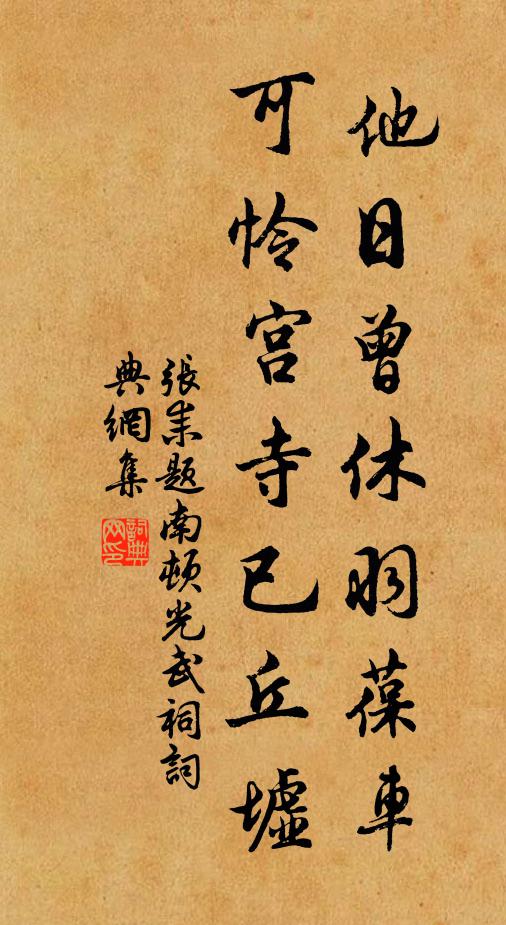 他日曾休羽葆車
可怜宫寺已丘墟
張耒題南頓光武祠詞
典網集
詞典
网印